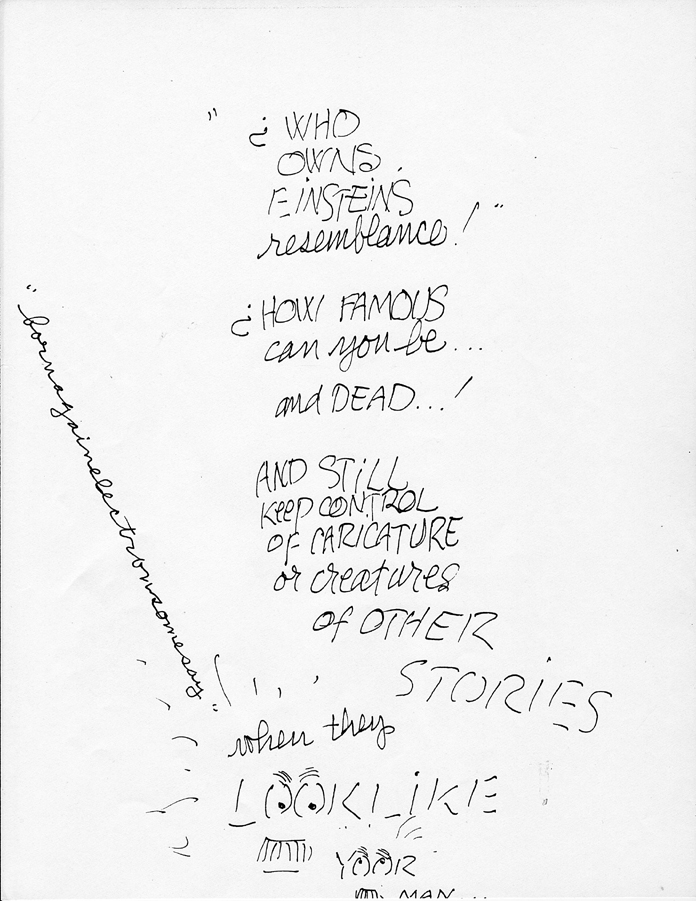 " ¿ WHO
OWNS
EINSTEINS
resemblance! "
¿ HOW FAMOUS
can you be...
and DEAD...!
AND STiLL
KEEP CONTROL
OF CARICATURE
or creatures
of OTHER
STORiES
when they
LOOK LiKE
YOOR
MAN...
"bornagainelectronsomesay"